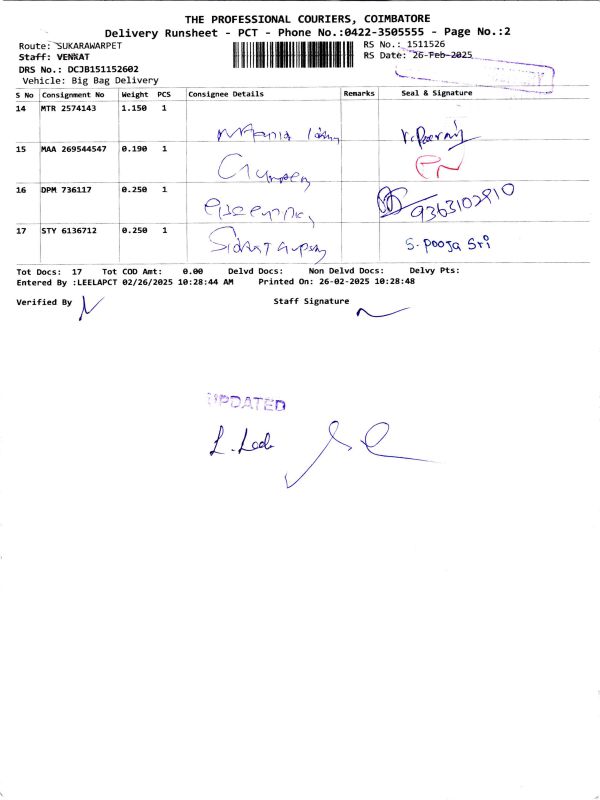 THE PROFESSIONAL COURIERS, COIMBATORE
Delivery Runsheet - PCT - Phone No.:0422-3505555 - Page No.:2
Route: SUKARAWARPET
RS No.: 1511526
Staff: VENKAT
RS Date: 26-Feb-2025
DRS No.: DCJB151152602
Vehicle: Big Bag Delivery
S No Consignment No Weight PCS Consignee Details Remarks Seal & Signature
14 MTR 2574143 1.150 1
15 MAA 269544547 0.190 1
16 DPM 736117 0.250 1 9363102910
17 STY 6136712 0.250 1 S. Pooja Sri
Tot Docs: 17 Tot COD Amt: 0.00 Delvd Docs: Non Delvd Docs: Delvy Pts:
Entered By :LEELAPCT 02/26/2025 10:28:44 AM Printed On: 26-02-2025 10:28:48
Verified By Staff Signature
UPDATED